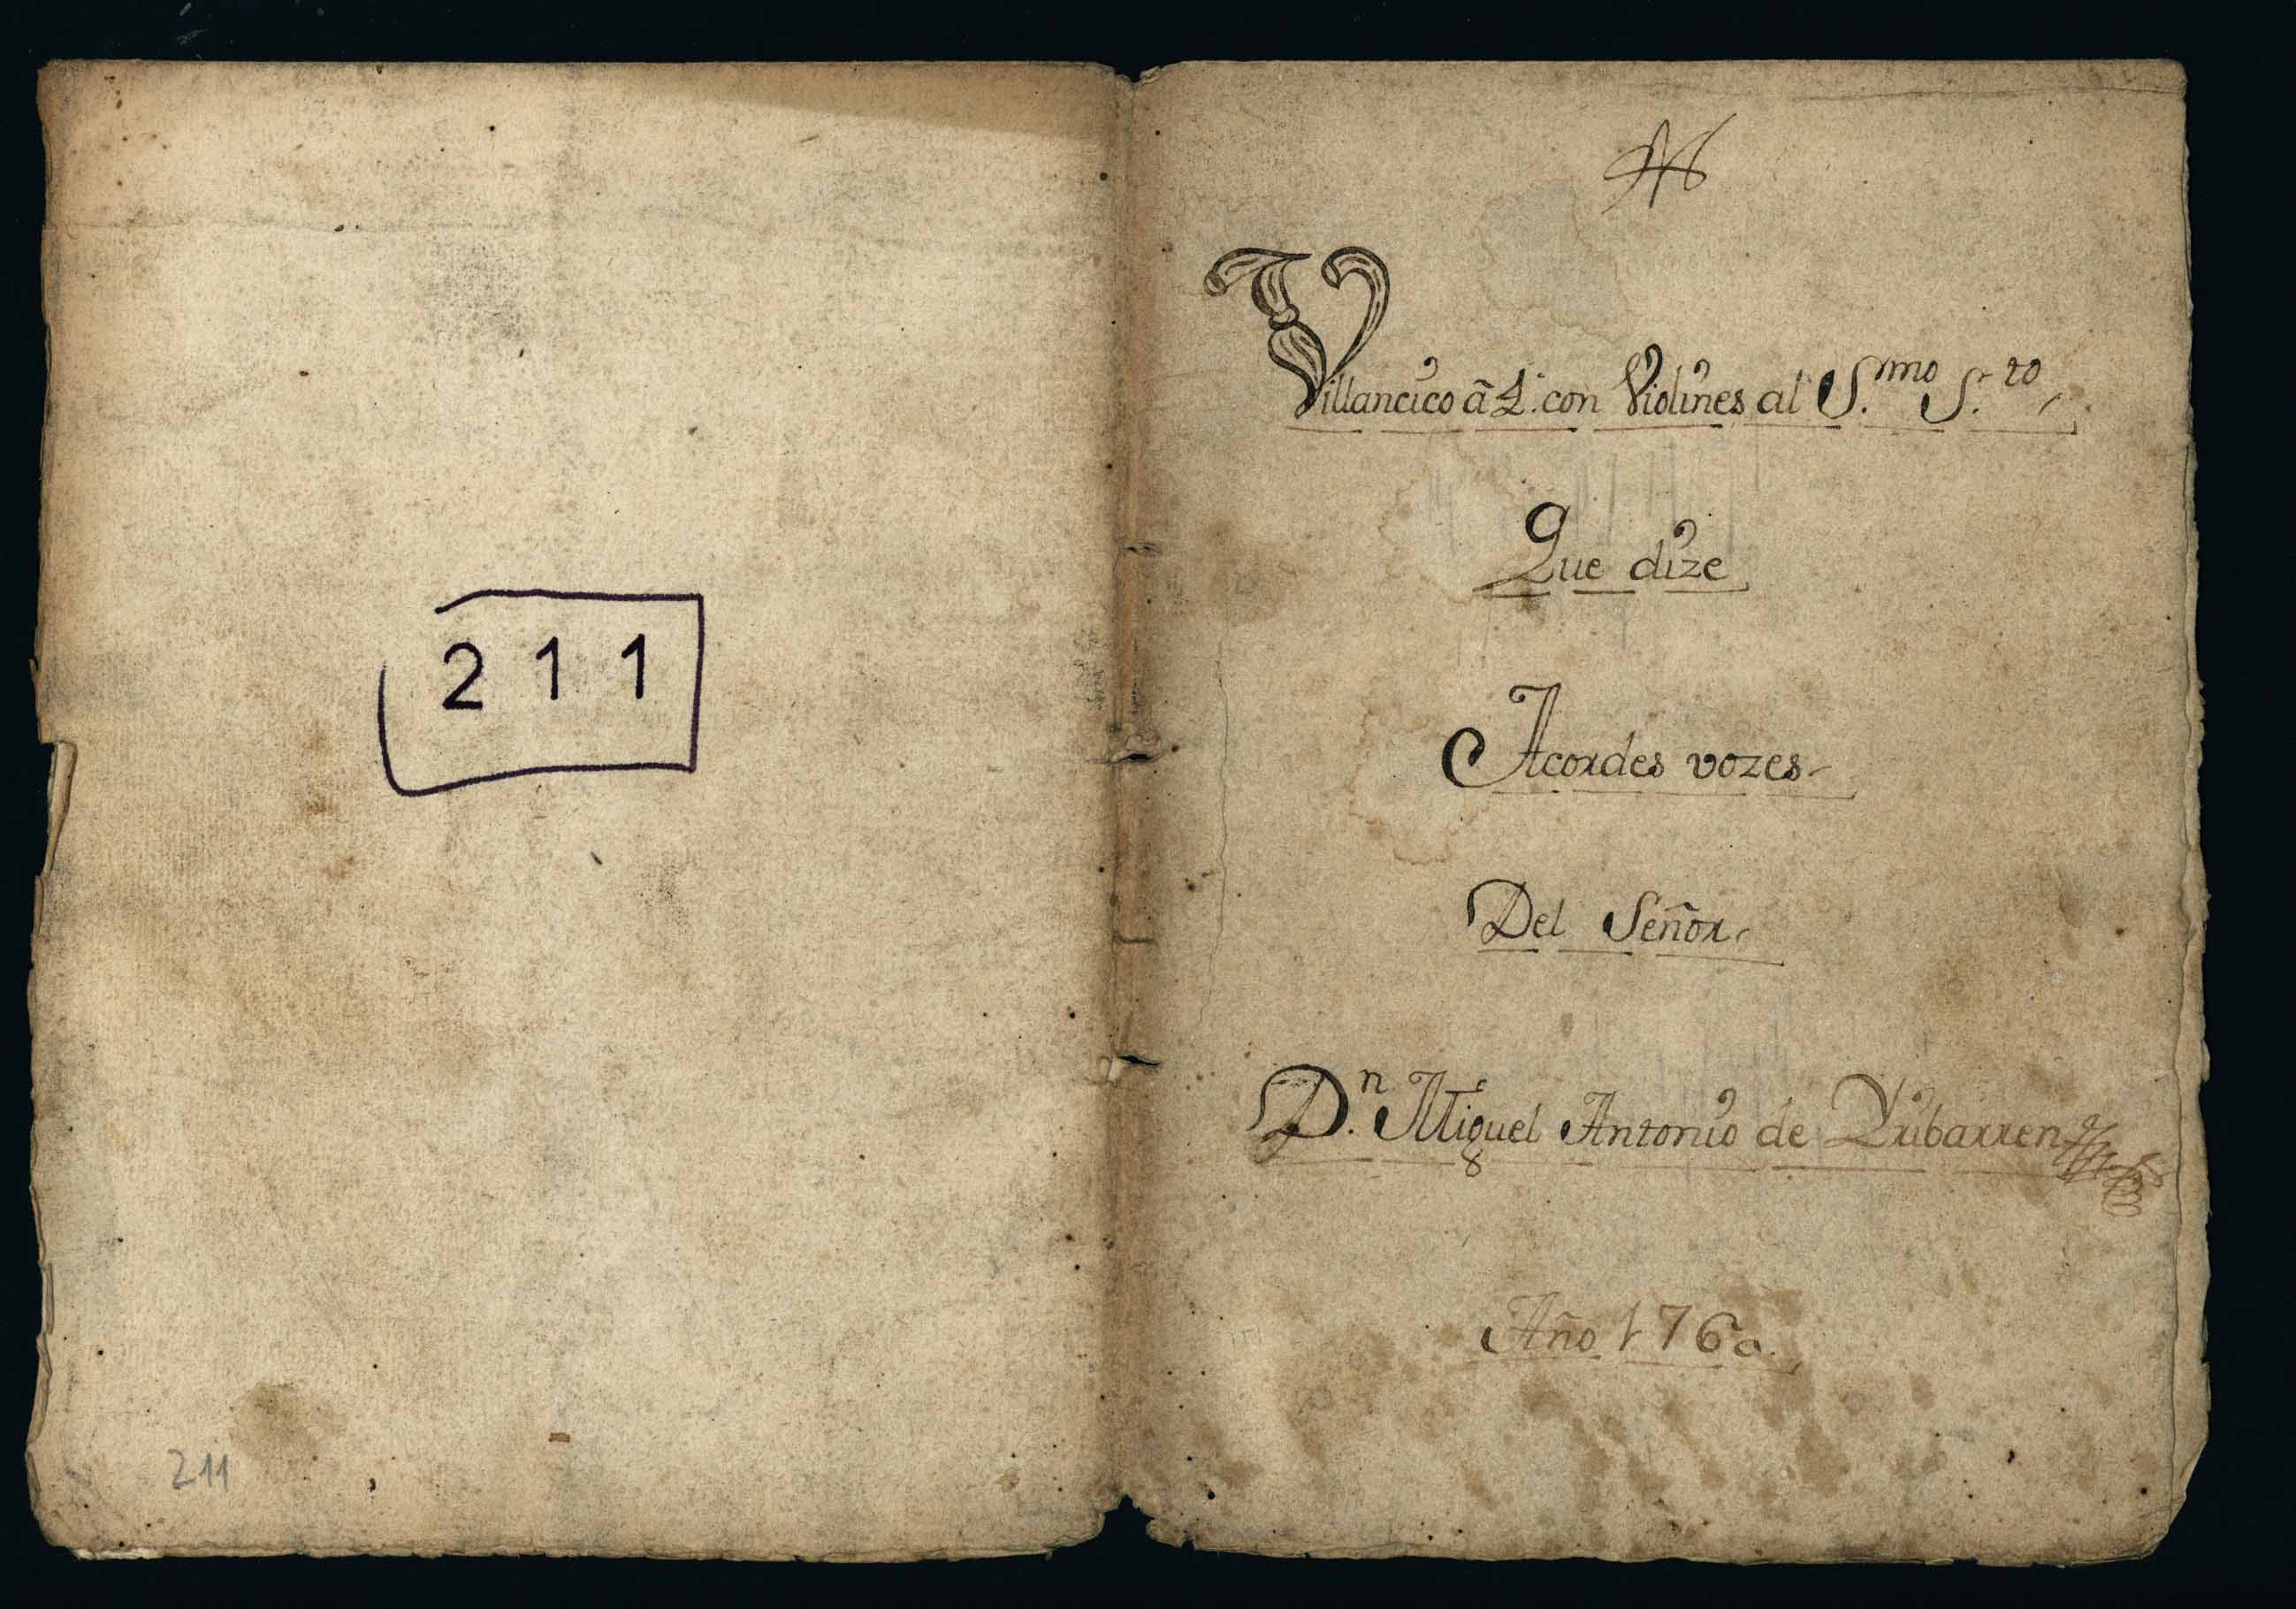 211
211
Villancico â 4. con Violines al S.mo S.to
Que dize
Acordes vozes
Del Señor
D.n Miguel Antonio de Yribarren
Año 1760.